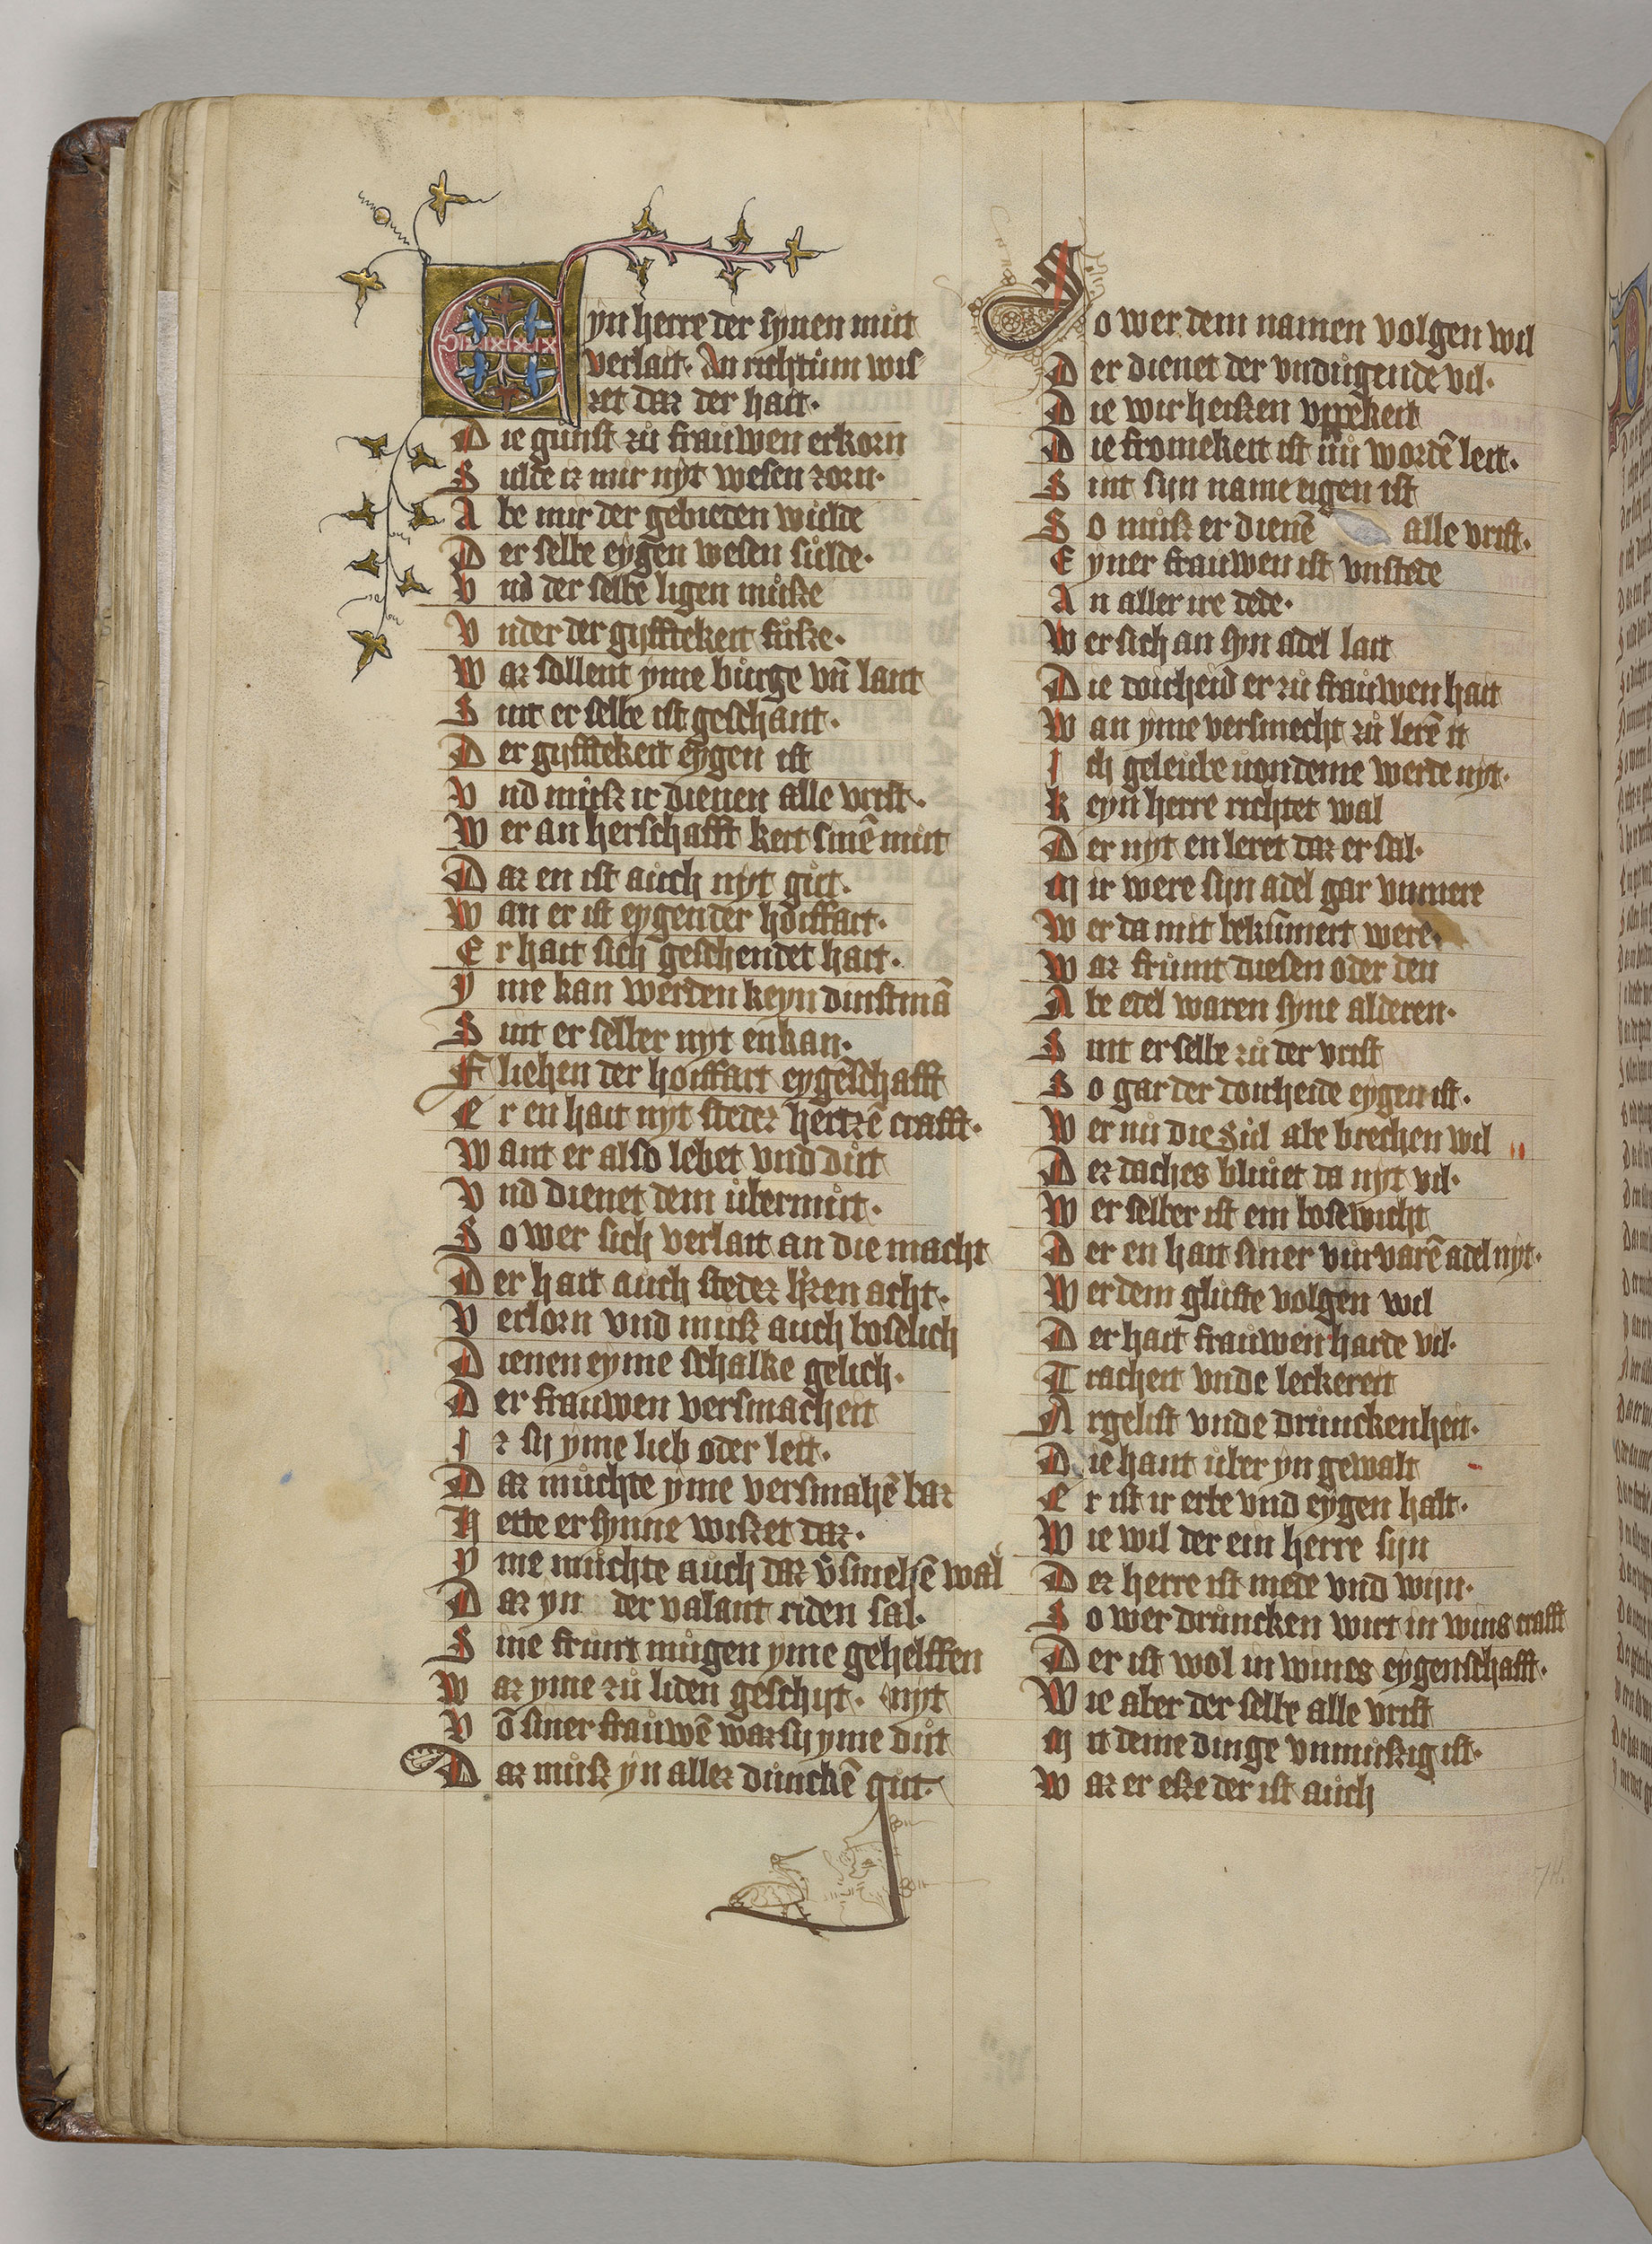 Eyn herre der synen muͦt
verlait. An richtuͦm wis
zet daz der hait.
Die guͦnst zuͦ frauwen erkorn
Sulde iz mir nyt wesen zorn.
Abe mir der gebieden wuͦlde
Der selbe eygen wesen suͦlde.
Vnd der selbe ligen muͦße
Vnder der gyfftekeit fuͦße.
Waz sollent yme buͦrge vn̄ lant
Sint er selbe ist geschant.
Der gyfftekeit eygen ist
Vnd muͦß ir dienen alle vrist.
Wer an herschafft kert sinē muͦt
Daz en ist auch nyt guͦt.
Wan er ist eygen der hoiffart.
Er hait sich geschendet hart.
Yme kan werden keyn dinstmā
Sint er selber nyt enkan.
Fliehen der hoiffart eygēschafft
Er en hait nyt stedez hertzē crafft.
Want er also lebet vnd duͦt
Vnd dienet dem uͦbermuͦt.
So wer sich verlait an die macht
Der hait auch stedez h'zen acht.
Verlorn vnd muͦß auch boslich
Dienen eyme schalke gelich.
Der frauwen versmacheit
Iz sy yme lieb oder leit.
Daz muͦchte yme versmahē baz
Hette er synne wißet daz.
Yme muͦchte auch daz v'smehē wal
Daz yn der valant riden sal.
Sine frunt muͦgen yme gehelffen
Waz yme zuͦ liden geschiyt. nyt
Vō siner frauwē waz sy yme duͦt
Daz muͦß yn allez duͦnckē guͦt.
So wer dem namen volgen wil
Der dienet der vnduͦgende vil.
Die wir heißen vppekeit
Die fromekeit ist im wordē leit.
Sint sijn name eigen ist
So muͦß er dienē alle vrist.
Eyner frauwen ist vnstede
An aller ire dede.
Wer sich an syn adel lait
Die doicheid er zuͦ frauwen hait
Wan yme versmecht zuͦ lerē it
Ich geleube uon deme werde nyt.
Keyn herre richtet wal
Der nyt en leret daz er sal.
Mir were sijn adel gar vnmere
Wer da mit bekūmert were.
Waz fruͦmt diesen oder den
Abe edel waren syne alderen.
Sint er selbe zuͦ der vrist
So gar der doicheide eygen ist.
Wer nuͦ die suͦl abe brechen wil
Dez daches bliuͦet da nyt vil.
Wer selber ist ein bosewicht
Der en hait siner vuͦrvarē adel nyt.
Wer dem gluste volgen wil
Der hait frauwen harde vil.
Tracheit vnde leckereit
Argelist vnde druͦnckenheit.
Die hant uͦber yn gewalt
Er ist ir erbe vnd eygen halt.
Wie wil der ein herre sijn
Dez herre ist mede vnd wijn.
So wer druͦncken wirt in wins crafft
Der ist wol in wines eygenschafft.
Wie aber der selbe alle vrist
Mit deme dinge vnmuͦßig ist.
Waz er eße der ist auch